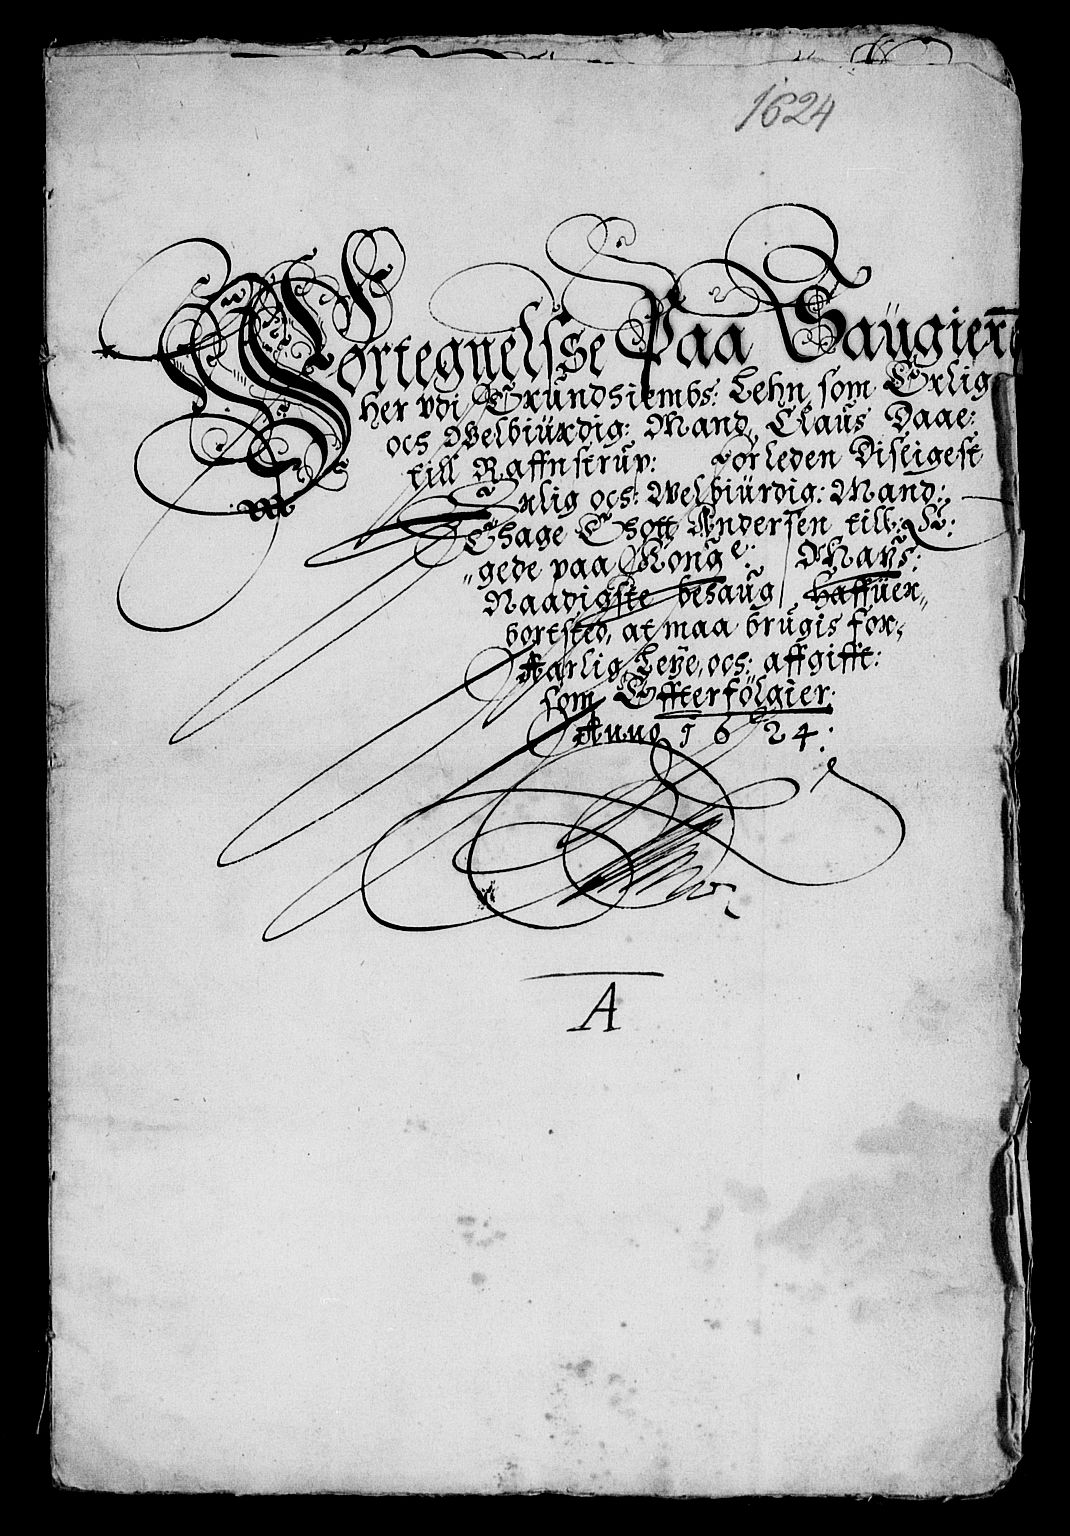 1624
Fortegnelsse Paa Saugierne
her vdi Brundhiembs: Lehn, som Erlig
och Welbiurdig: Mand, Claus Daae:
till Raffnstrup: forleden Disligest
Erlig och: Welbiürdig: Mand:
Thage Thott Andersen till:
gede paa Kong e: Mays:
Naadigste behaug, Haffüer
bortsted, at maa brugis for,
Aarlig Leÿe, och: affgifft:
som Effterfölgier.
Anno 1624:
A